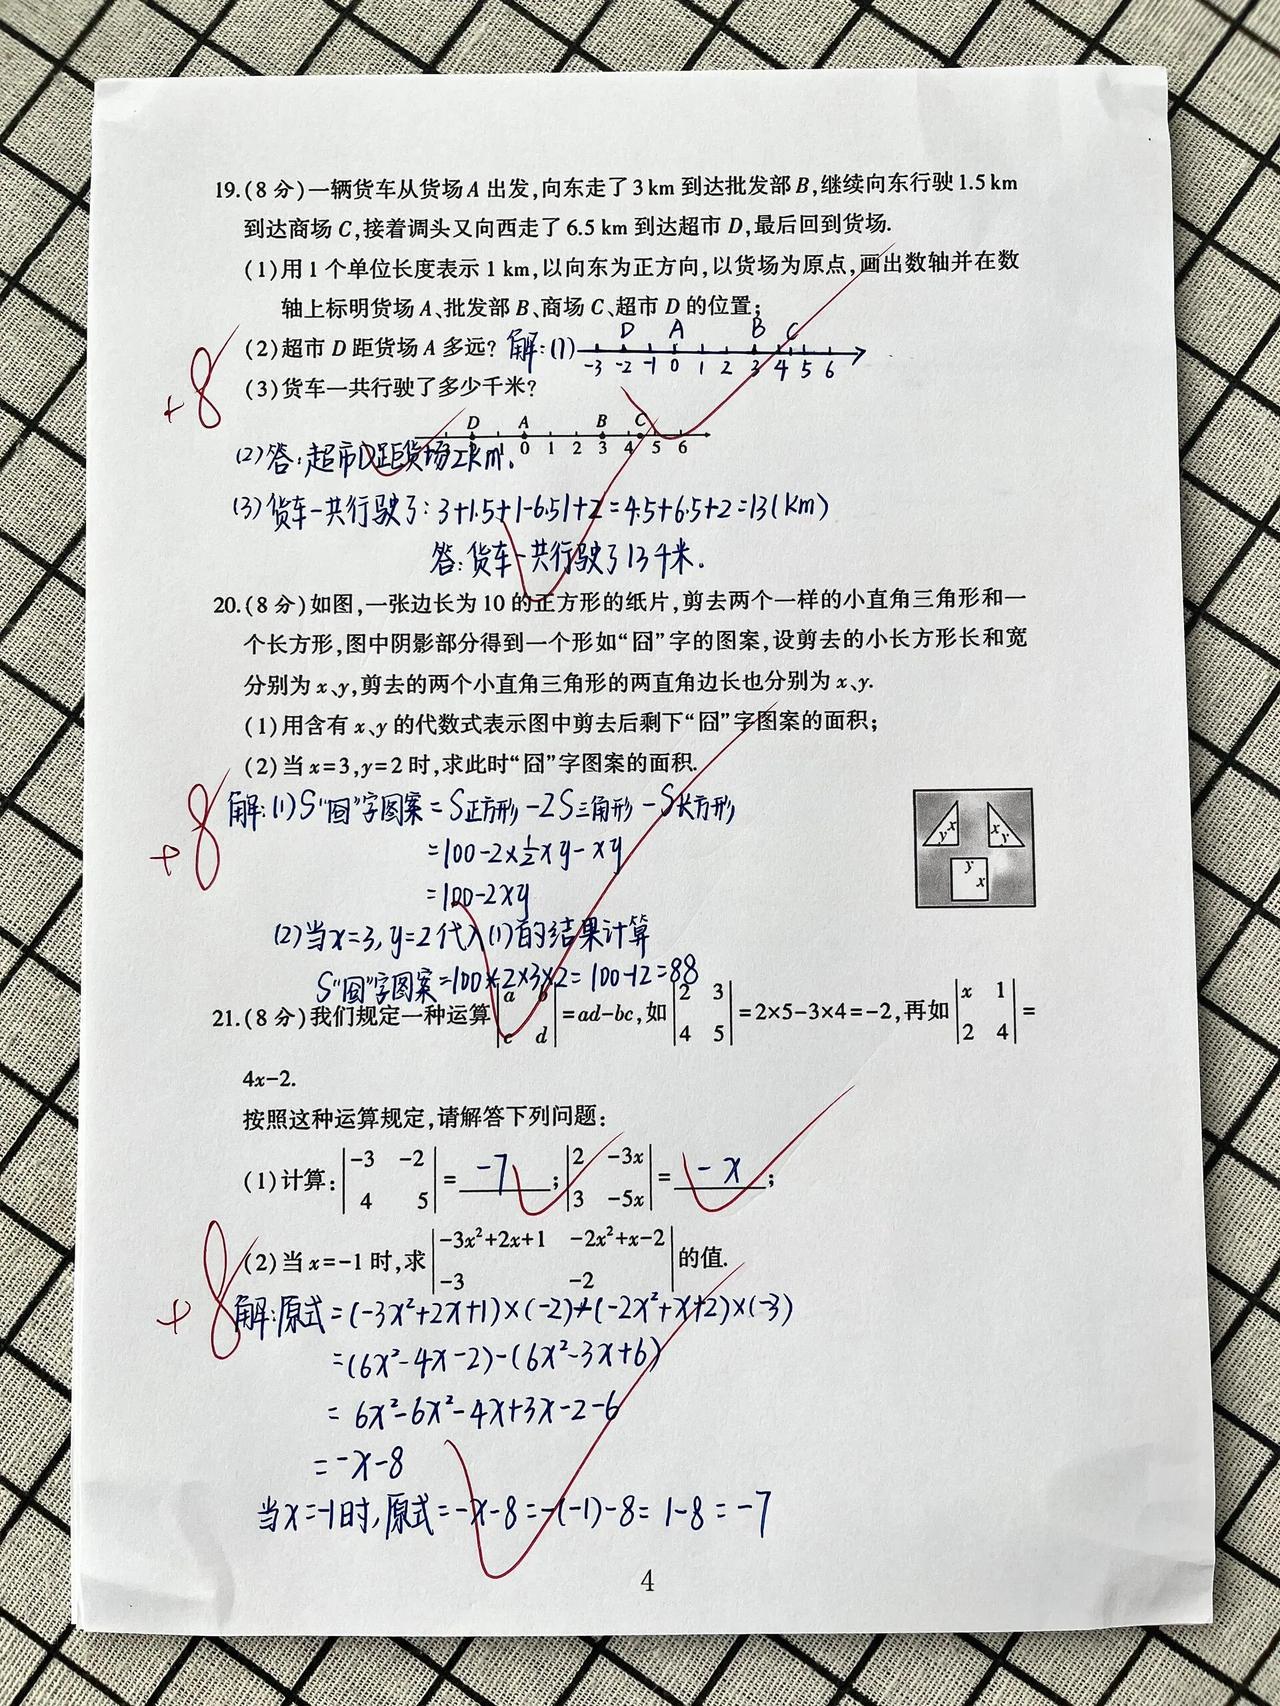 19.(8分)一辆货车从货场A出发,向东走了3km到达批发部B,继续向东行驶1.5km
到达商场C,接着调头又向西走了6.5km到达超市D,最后回到货场.
(1)用1个单位长度表示1km,以向东为正方向,以货场为原点,画出数轴并在数
轴上标明货场A、批发部B、商场C、超市D的位置;
D A B C
(2)超市D距货场A多远? 解:(1)
-3 -2 -1 0 1 2 3 4 5 6
+8
(3)货车一共行驶了多少千米?
D A B C
1 0 1 2 3 4 5 6
(2)答:超市D距货场2km.
(3)货车一共行驶了:3+1.5+|-6.5|+2=4.5+6.5+2=13(km)
答:货车一共行驶了13千米.
20.(8分)如图,一张边长为10的正方形的纸片,剪去两个一样的小直角三角形和一
个长方形,图中阴影部分得到一个形如“囧”字的图案,设剪去的小长方形长和宽
分别为x、y,剪去的两个小直角三角形的两直角边长也分别为x、y.
(1)用含有x、y的代数式表示图中剪去后剩下“囧”字图案的面积;
(2)当x=3,y=2时,求此时“囧”字图案的面积.
+8
解:(1)S“囧”字图案=S正方形-2S三角形-S长方形
=100-2×½xy-xy
=100-2xy
y x x y
y
x
(2)当x=3,y=2代入(1)的结果计算
S“囧”字图案=100-2×3×2=100-12=88
21.(8分)我们规定一种运算|a b|=ad-bc,如|2 3|=2×5-3×4=-2,再如|x 1|=
|c d| |4 5| |2 4|
4x-2.
按照这种运算规定,请解答下列问题:
(1)计算:|-3 -2|=-7;|2 -3x|=-x;
|4 5| |3 -5x|
(2)当x=-1时,求|-3x²+2x+1 -2x²+x-2|的值.
|-3 -2|
+8
解:原式=(-3x²+2x+1)×(-2)-(-2x²+x-2)×(-3)
=(6x²-4x-2)-(6x²-3x+6)
=6x²-6x²-4x+3x-2-6
=-x-8
当x=-1时,原式=-x-8=-(-1)-8=1-8=-7
4